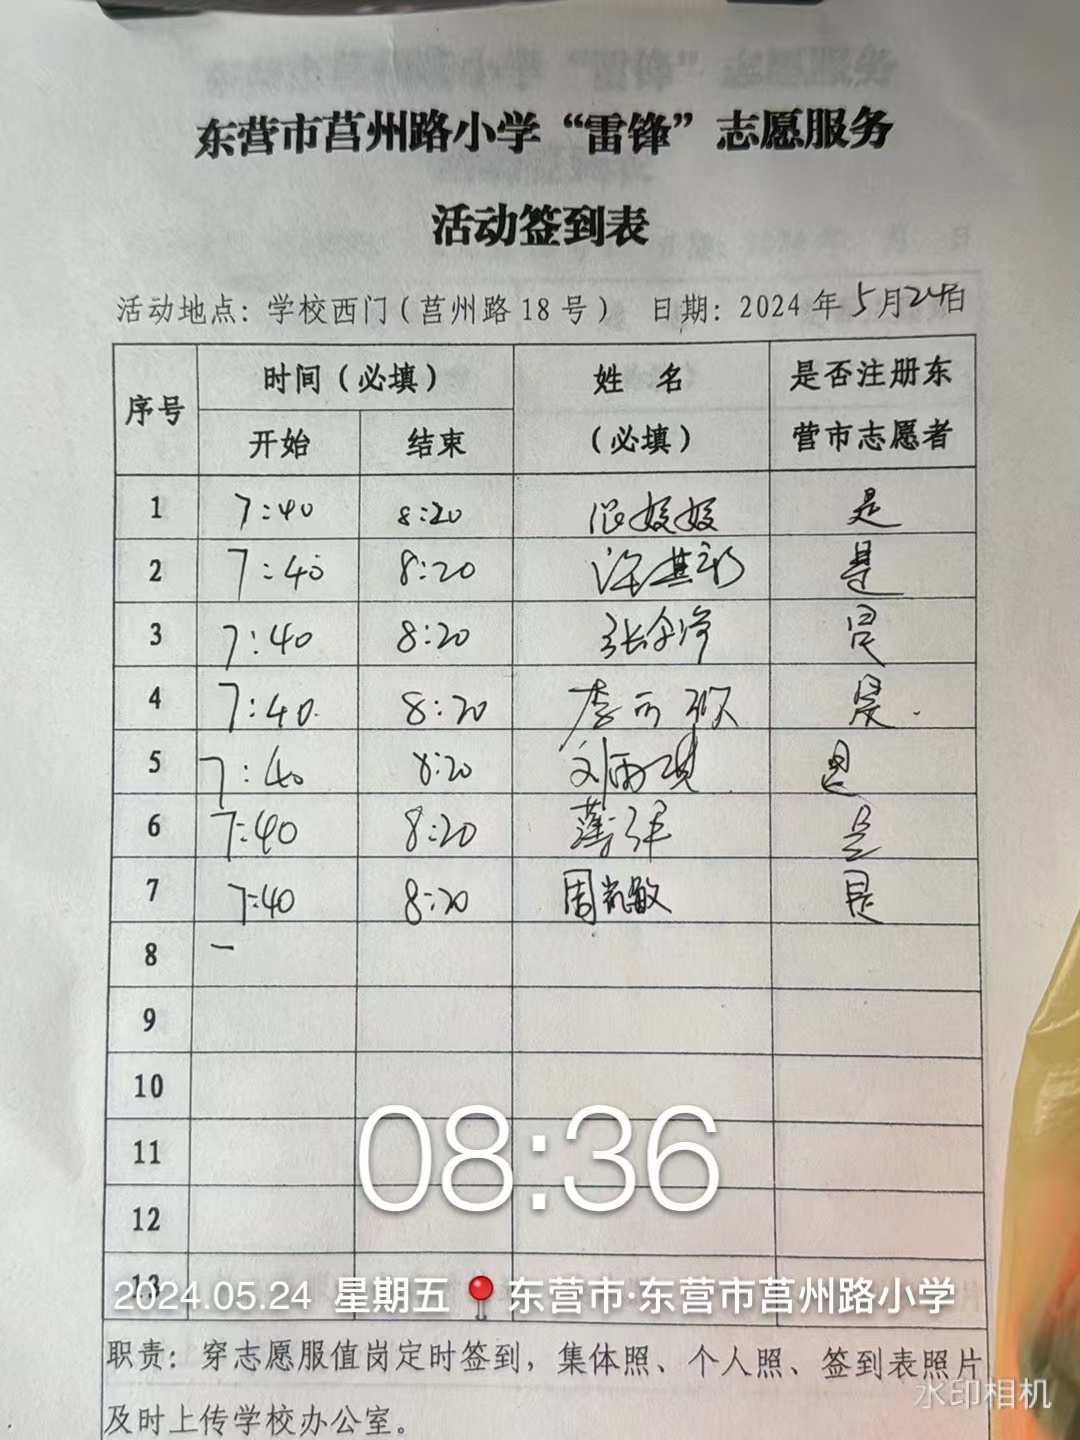 东营市莒州路小学“雷锋”志愿服务
活动签到表
活动地点：学校西门（莒州路18号） 日期：2024年5月24日
序号 时间（必填） 姓名（必填） 是否注册东营市志愿者
开始 结束
1 7:40 8:20 是
2 7:40 8:20 是
3 7:40 8:20 是
4 7:40. 8:20 是.
5 7:40 8:20 刘雨琪 是
6 7:40 8:20 是
7 7:40 8:20 周凯敏 是
8 一
9
10
11
12
13
08:36
2024.05.24 星期五 东营市·东营市莒州路小学
职责：穿志愿服值岗定时签到，集体照、个人照、签到表照片
及时上传学校办公室。
水印相机